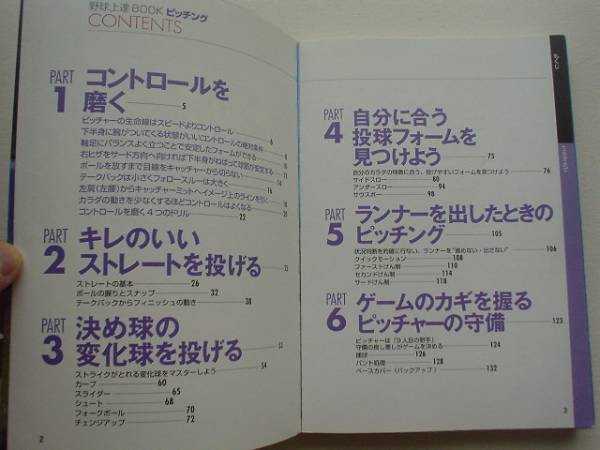 野球上達BOOK ピッチング
CONTENTS
PART 1 コントロールを
磨く 5
ピッチャーの生命線はスピードよりコントロール 6
下半身に腕がついてくる状態がいいコントロールの絶対条件
軸足にバランスよく立つことで安定したフォームができる
右ヒザをサード方向へ向ければ下半身がねばって球筋が安定する
ボールを放すまで目線をキャッチャーから切らない
テークバックは小さくフォロースルーは大きく
左肩(左腰)からキャッチャーミットへイメージ上のラインを引く
カラダの動きを少なくするほどコントロールはよくなる
コントロールを磨く4つのドリル 22
PART 2 キレのいい
ストレートを投げる
ストレートの基本 26
ボールの握りとスナップ 32
テークバックからフィニッシュの動き 38
PART 3 決め球の
変化球を投げる
ストライクがとれる変化球をマスターしよう 54
カーブ 60
スライダー 65
シュート 68
フォークボール 70
チェンジアップ 72
2
もくじ
CONTENTS
PART 4 自分に合う
投球フォームを
見つけよう 75
自分のカラダの特徴に合う、投げやすいフォームを見つけよう 76
サイドスロー 80
アンダースロー 94
サウスポー 98
PART 5 ランナーを出したときの
ピッチング 105
状況判断を的確に行ない、ランナーを“進めない・出さない” 106
クイックモーション 108
ファーストけん制 110
セカンドけん制 114
サードけん制 118
PART 6 ゲームのカギを握る
ピッチャーの守備 123
ピッチャーは「9人目の野手」
守備の良し悪しがゲームを決める 124
捕球 126
バント処理 128
ベースカバー(バックアップ) 132
3